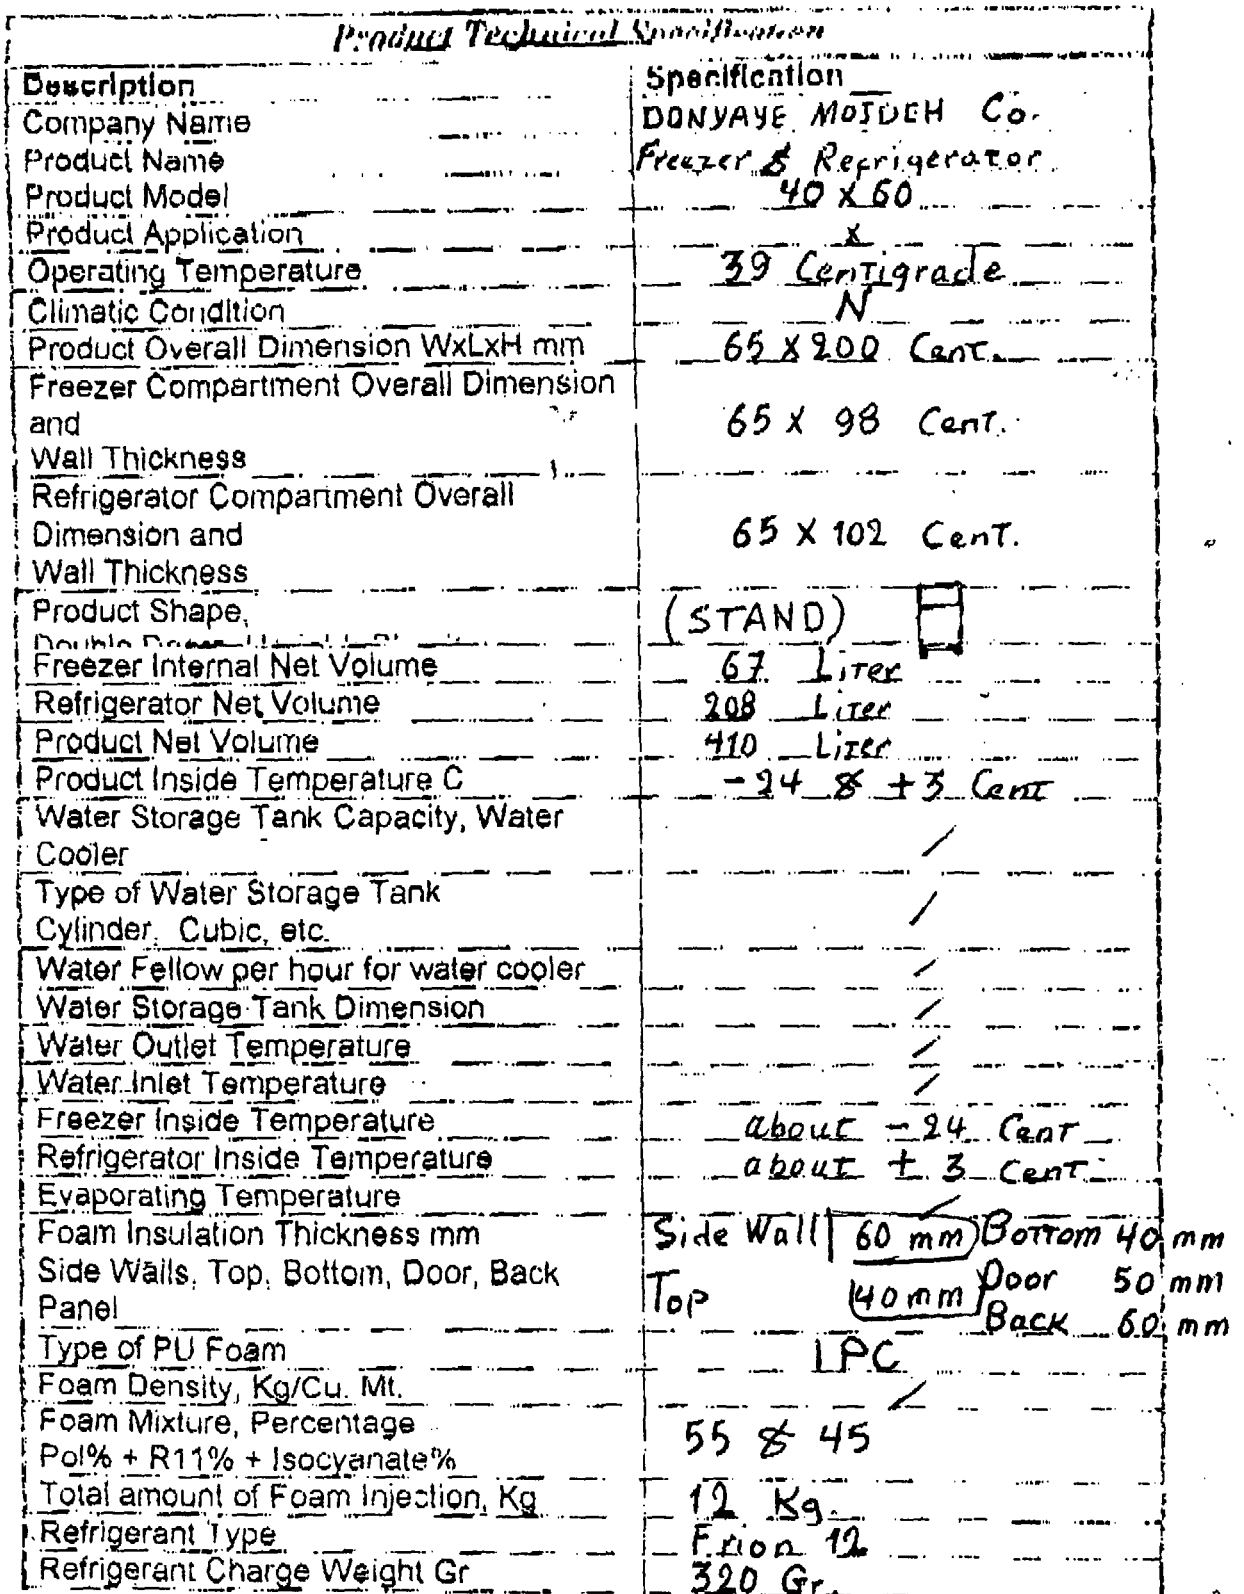 Product Technical Specification
Description Specification
Company Name DONYAYE MOJDEH Co.
Product Name Freezer & Refrigerator
Product Model 40 x 60
Product Application x
Operating Temperature 39 Centigrade
Climatic Condition N
Product Overall Dimension WxLxH mm 65 x 200 Cent.
Freezer Compartment Overall Dimension
and 65 x 98 Cent.
Wall Thickness
Refrigerator Compartment Overall
Dimension and 65 x 102 Cent.
Wall Thickness
Product Shape, (STAND)
Double
Freezer Internal Net Volume 67 Liter
Refrigerator Net Volume 208 Liter
Product Net Volume 410 Liter
Product Inside Temperature C -24 & +3 Cent
Water Storage Tank Capacity, Water /
Cooler
Type of Water Storage Tank /
Cylinder, Cubic, etc.
Water Fellow per hour for water cooler /
Water Storage Tank Dimension /
Water Outlet Temperature /
Water Inlet Temperature /
Freezer Inside Temperature about -24 Cent
Refrigerator Inside Temperature about ± 3 Cent.
Evaporating Temperature /
Foam Insulation Thickness mm Side Wall 60 mm Bottom 40 mm
Side Walls, Top, Bottom, Door, Back Top 40 mm Door 50 mm
Panel Back 60 mm
Type of PU Foam IPC
Foam Density, Kg/Cu. Mt. /
Foam Mixture, Percentage 55 & 45
Pol% + R11% + Isocyanate%
Total amount of Foam Injection, Kg 12 Kg.
Refrigerant Type Frion 12
Refrigerant Charge Weight Gr 320 Gr.